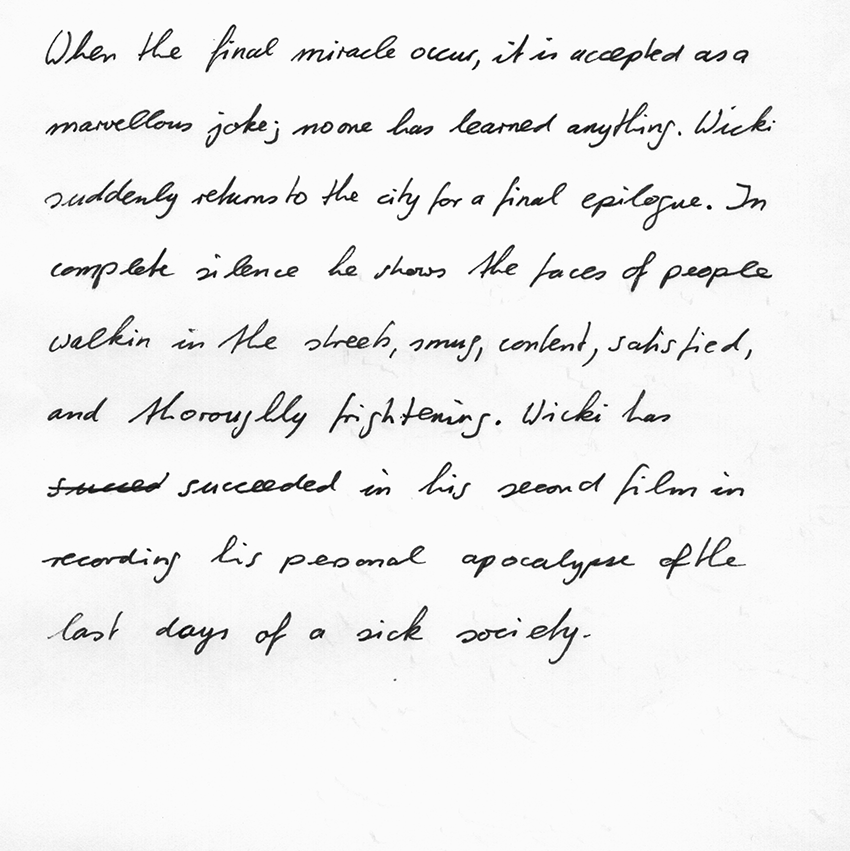 When the final miracle occur, it is accepted as a
marvellous joke; no one has learned anything. Wicki
suddenly returns to the city for a final epilogue. In
complete silence he shows the faces of people
walkin in the streets, smug, content, satisfied,
and thoroughly frightening. Wicki has
succeed succeeded in his second film in
recording his personal apocalypse of the
last days of a sick society.